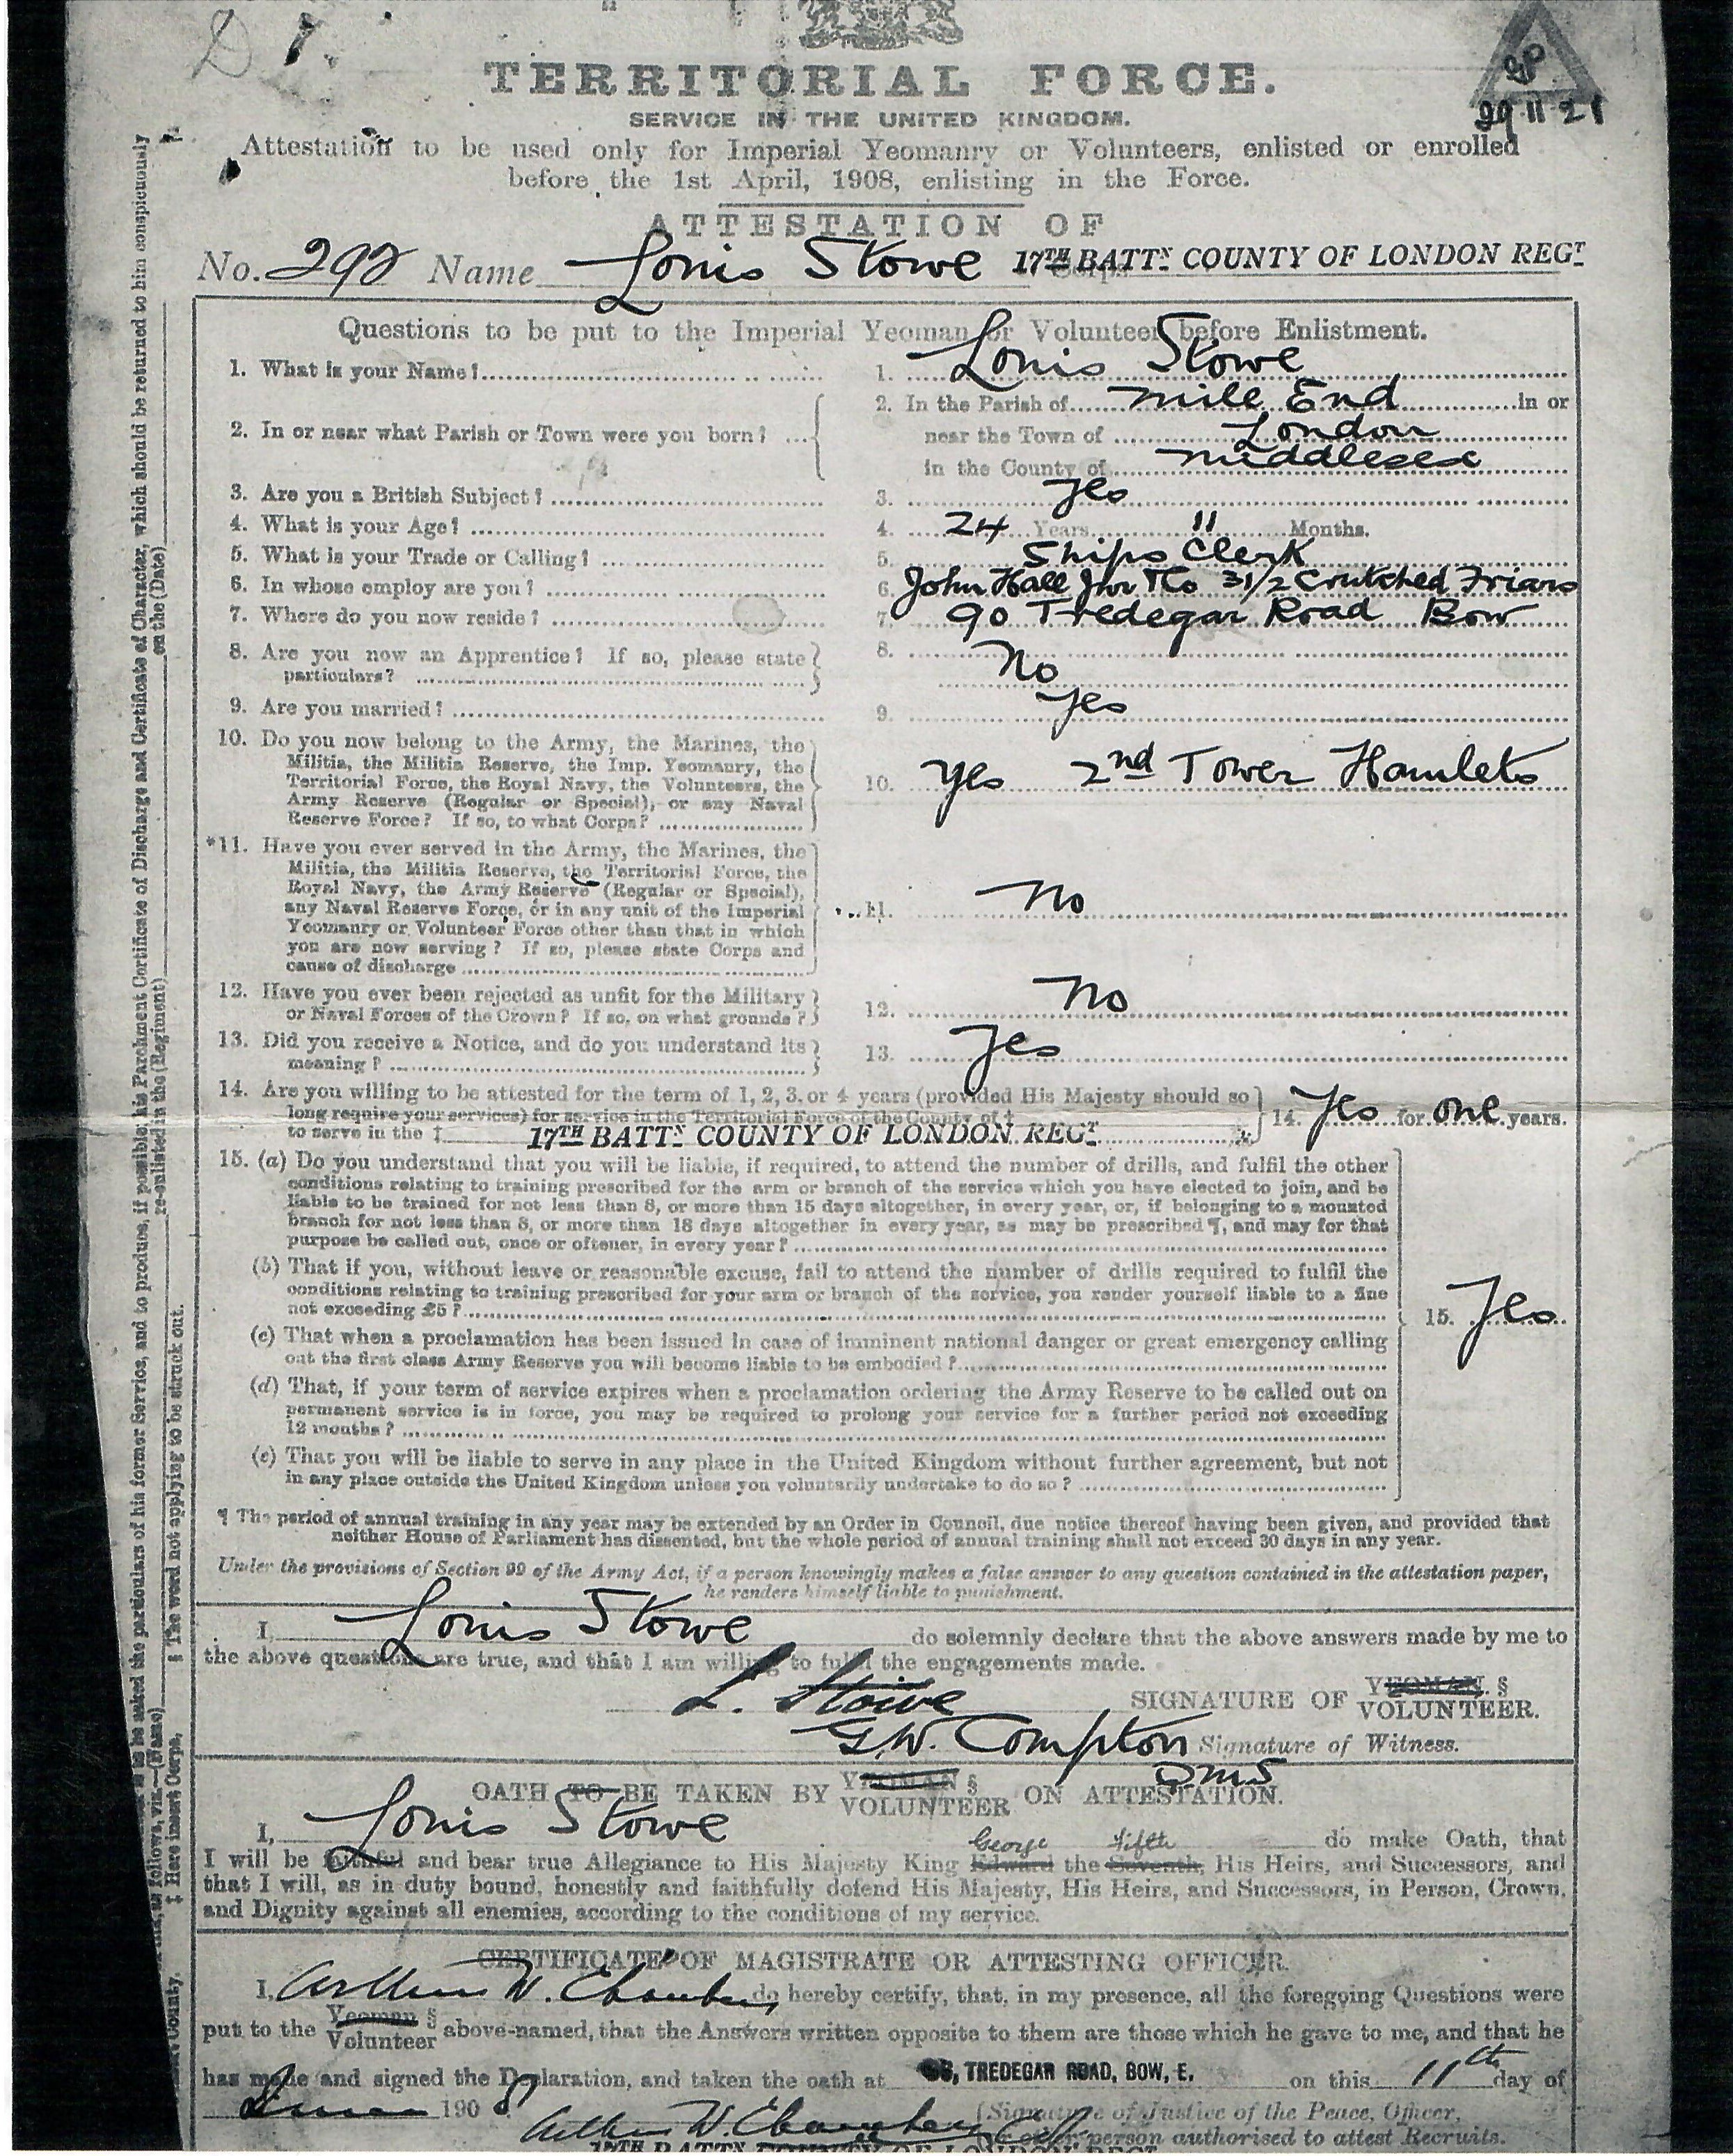 D 1.
TERRITORIAL FORCE.
SERVICE IN THE UNITED KINGDOM.
29 11 21
Attestation to be used only for Imperial Yeomanry or Volunteers, enlisted or enrolled
before the 1st April, 1908, enlisting in the Force.
ATTESTATION OF
No. 292 Name Louis Stowe 17TH BATTN COUNTY OF LONDON REGT
Questions to be put to the Imperial Yeoman or Volunteer before Enlistment.
1. What is your Name? 1. Louis Stowe
2. In or near what Parish or Town were you born? 2. In the Parish of Mile End in or
near the Town of London
in the County of Middlesex
3. Are you a British Subject? 3. Yes
4. What is your Age? 4. 24 Years 11 Months.
5. What is your Trade or Calling? 5. Ships Clerk
6. In whose employ are you? 6. John Hall Jnr & Co 31/2 Crutched Friars
7. Where do you now reside? 7. 90 Tredegar Road Bow
8. Are you now an Apprentice? If so, please state 8. No
particulars?
9. Are you married? 9. Yes
10. Do you now belong to the Army, the Marines, the
Militia, the Militia Reserve, the Imp. Yeomanry, the
Territorial Force, the Royal Navy, the Volunteers, the 10. Yes 2nd Tower Hamlets
Army Reserve (Regular or Special), or any Naval
Reserve Force? If so, to what Corps?
*11. Have you ever served in the Army, the Marines, the
Militia, the Militia Reserve, the Territorial Force, the
Royal Navy, the Army Reserve (Regular or Special),
any Naval Reserve Force, or in any unit of the Imperial 11. No
Yeomanry or Volunteer Force other than that in which
you are now serving? If so, please state Corps and
cause of discharge
12. Have you ever been rejected as unfit for the Military
or Naval Forces of the Crown? If so, on what grounds? 12. No
13. Did you receive a Notice, and do you understand its
meaning? 13. Yes
14. Are you willing to be attested for the term of 1, 2, 3, or 4 years (provided His Majesty should so
long require your services) for service in the Territorial Force of the County of † 14. Yes for one years.
to serve in the ‡ 17TH BATTN COUNTY OF LONDON REGT
15. (a) Do you understand that you will be liable, if required, to attend the number of drills, and fulfil the other
conditions relating to training prescribed for the arm or branch of the service which you have elected to join, and be
liable to be trained for not less than 8, or more than 15 days altogether, in every year, or, if belonging to a mounted
branch for not less than 8, or more than 18 days altogether in every year, as may be prescribed ¶, and may for that
purpose be called out, once or oftener, in every year?
(b) That if you, without leave or reasonable excuse, fail to attend the number of drills required to fulfil the
conditions relating to training prescribed for your arm or branch of the service, you render yourself liable to a fine
not exceeding £5? 15. Yes
(c) That when a proclamation has been issued in case of imminent national danger or great emergency calling
out the first class Army Reserve you will become liable to be embodied?
(d) That, if your term of service expires when a proclamation ordering the Army Reserve to be called out on
permanent service is in force, you may be required to prolong your service for a further period not exceeding
12 months?
(e) That you will be liable to serve in any place in the United Kingdom without further agreement, but not
in any place outside the United Kingdom unless you voluntarily undertake to do so?
¶ The period of annual training in any year may be extended by an Order in Council, due notice thereof having been given, and provided that
neither House of Parliament has dissented, but the whole period of annual training shall not exceed 30 days in any year.
Under the provisions of Section 99 of the Army Act, if a person knowingly makes a false answer to any question contained in the attestation paper,
he renders himself liable to punishment.
I, Louis Stowe do solemnly declare that the above answers made by me to
the above questions are true, and that I am willing to fulfil the engagements made.
L. Stowe SIGNATURE OF YEOMAN. §
VOLUNTEER.
G.W. Compton Signature of Witness.
OATH TO BE TAKEN BY YEOMAN § VOLUNTEER ON ATTESTATION.
I, Louis Stowe do make Oath, that
George Fifth
I will be faithful and bear true Allegiance to His Majesty King Edward the Seventh, His Heirs, and Successors, and
that I will, as in duty bound, honestly and faithfully defend His Majesty, His Heirs, and Successors, in Person, Crown,
and Dignity against all enemies, according to the conditions of my service.
CERTIFICATE OF MAGISTRATE OR ATTESTING OFFICER.
I, Arthur W. Chambers do hereby certify, that, in my presence, all the foregoing Questions were
put to the Yeoman § Volunteer above-named, that the Answers written opposite to them are those which he gave to me, and that he
has made and signed the Declaration, and taken the oath at TREDEGAR ROAD, BOW, E. on this 11th day of
190 (Signature of Justice of the Peace, Officer,
or other person authorised to attest Recruits.
Arthur W. Chambers
17TH BATTN COUNTY OF LONDON REGT
is to be asked the particulars of his former Service, and to produce, if possible, his Parchment Certificate of Discharge and Certificate of Character, which should be returned to him conspicuously
as follows, viz.—(Name) re-enlisted in the (Regiment) on the (Date)
‡ Here insert Corps. § The word not applying to be struck out.
County.